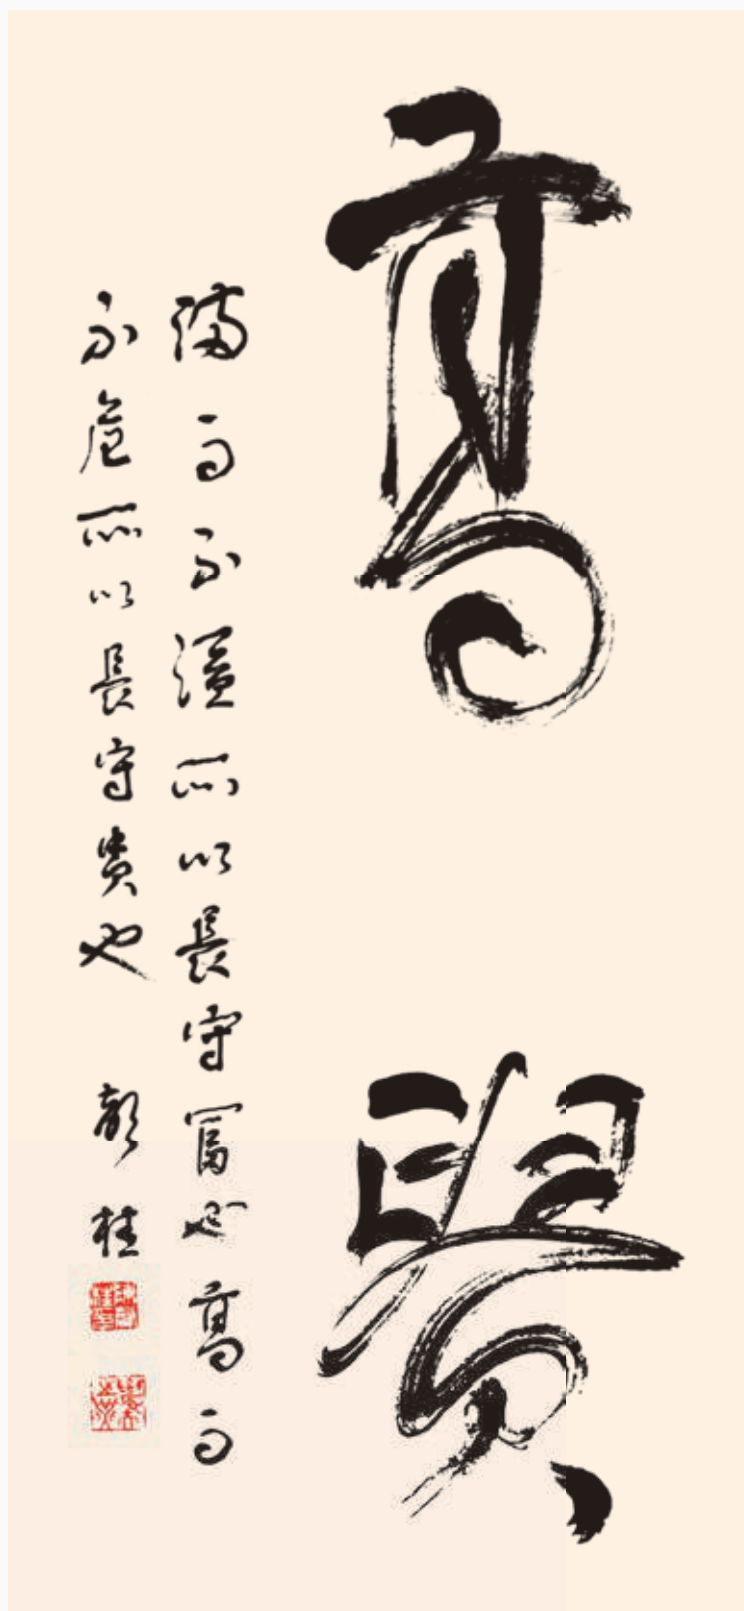 高貴
滿而不溢所以長守富也高而
不危所以長守貴也 桂